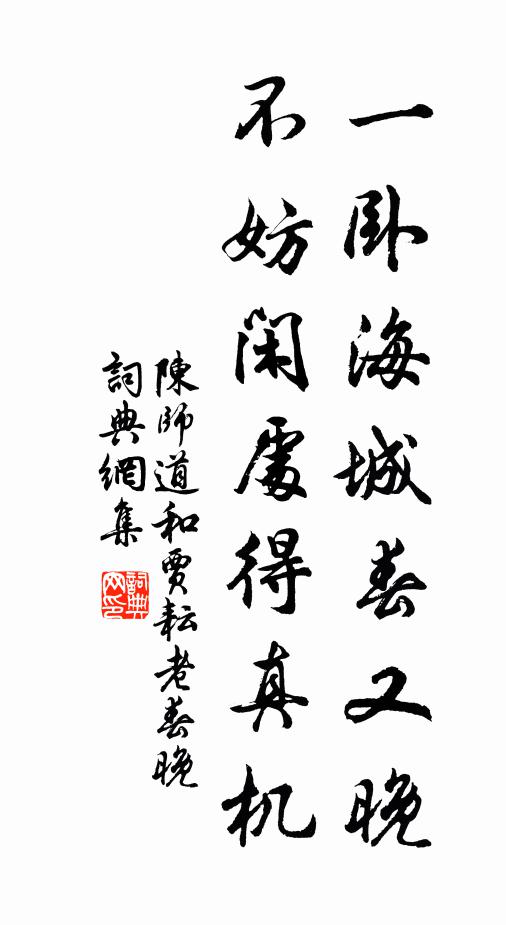 一卧海城春又晚
不妨閑處得真机
陳師道和賈耘老春晚
詞典網集
詞典网印